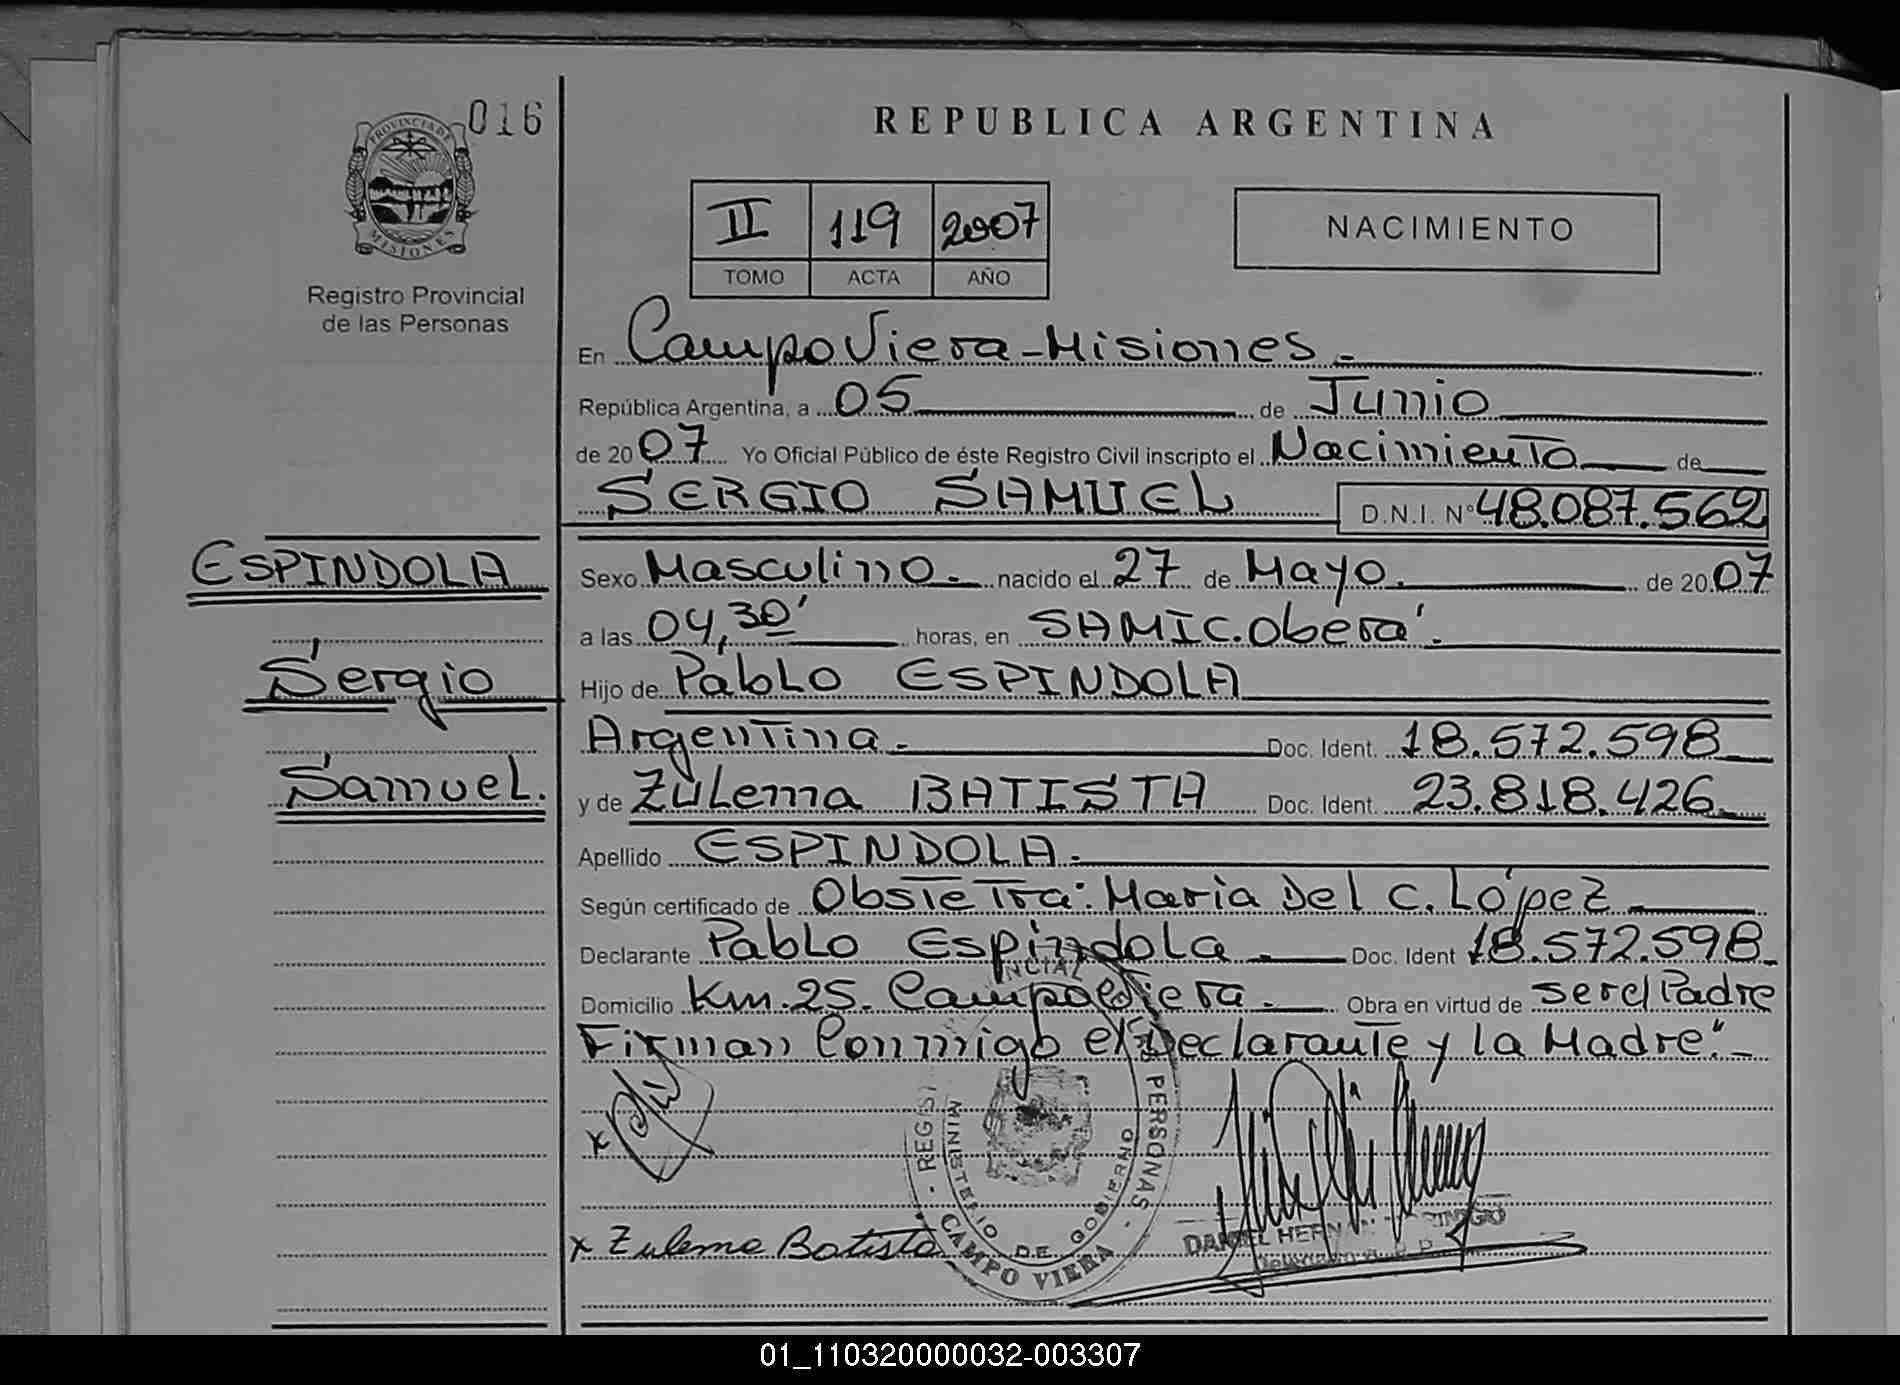 016
REPUBLICA ARGENTINA
PROVINCIA DE
MISIONES
Registro Provincial
de las Personas
II 119 2007
TOMO ACTA AÑO
NACIMIENTO
En Campo Viera-Misiones.-
República Argentina, a 05 de Junio
de 2007 Yo Oficial Público de éste Registro Civil inscripto el Nacimiento de
SERGIO SAMUEL D.N.I. Nº 48.087.562
ESPINDOLA
Sergio
Samuel.
Sexo Masculino. nacido el 27 de Mayo. de 2007
a las 04,30' horas, en SAMIC. Oberá.
Hijo de Pablo ESPINDOLA
Argentina.- Doc. Ident. 18.572.598
y de Zulema BATISTA Doc. Ident. 23.818.426
Apellido ESPINDOLA.
Según certificado de Obstetra: María Del C. López
Declarante Pablo Espindola Doc. Ident 18.572.598
Domicilio Km. 25. Campo Viera. Obra en virtud de ser el Padre
Firman Conmigo el Declarante y la Madre".-
x
x Zulema Batista
PERSONAS
MINISTERIO DE GOBIERNO
CAMPO VIERA
DANIEL
01_110320000032-003307